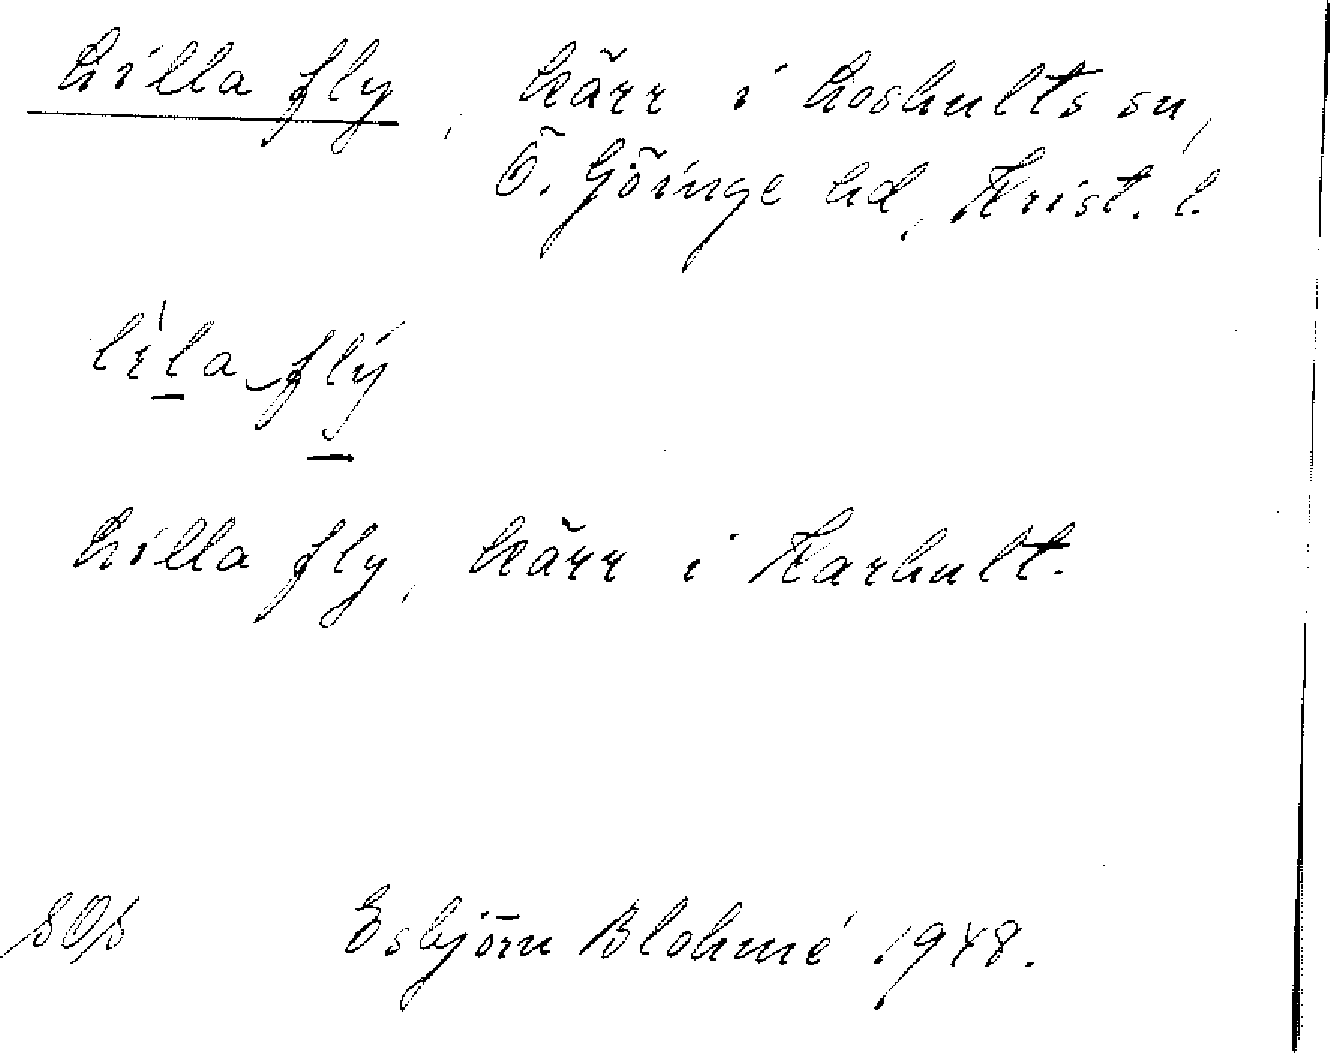 Lilla fly, kärr i Loshults sn,
Ö. Göinge hd, Krist. l.
lìla flý
Lilla fly, kärr i Karhult.
Esbjörn Blohmé 1948.